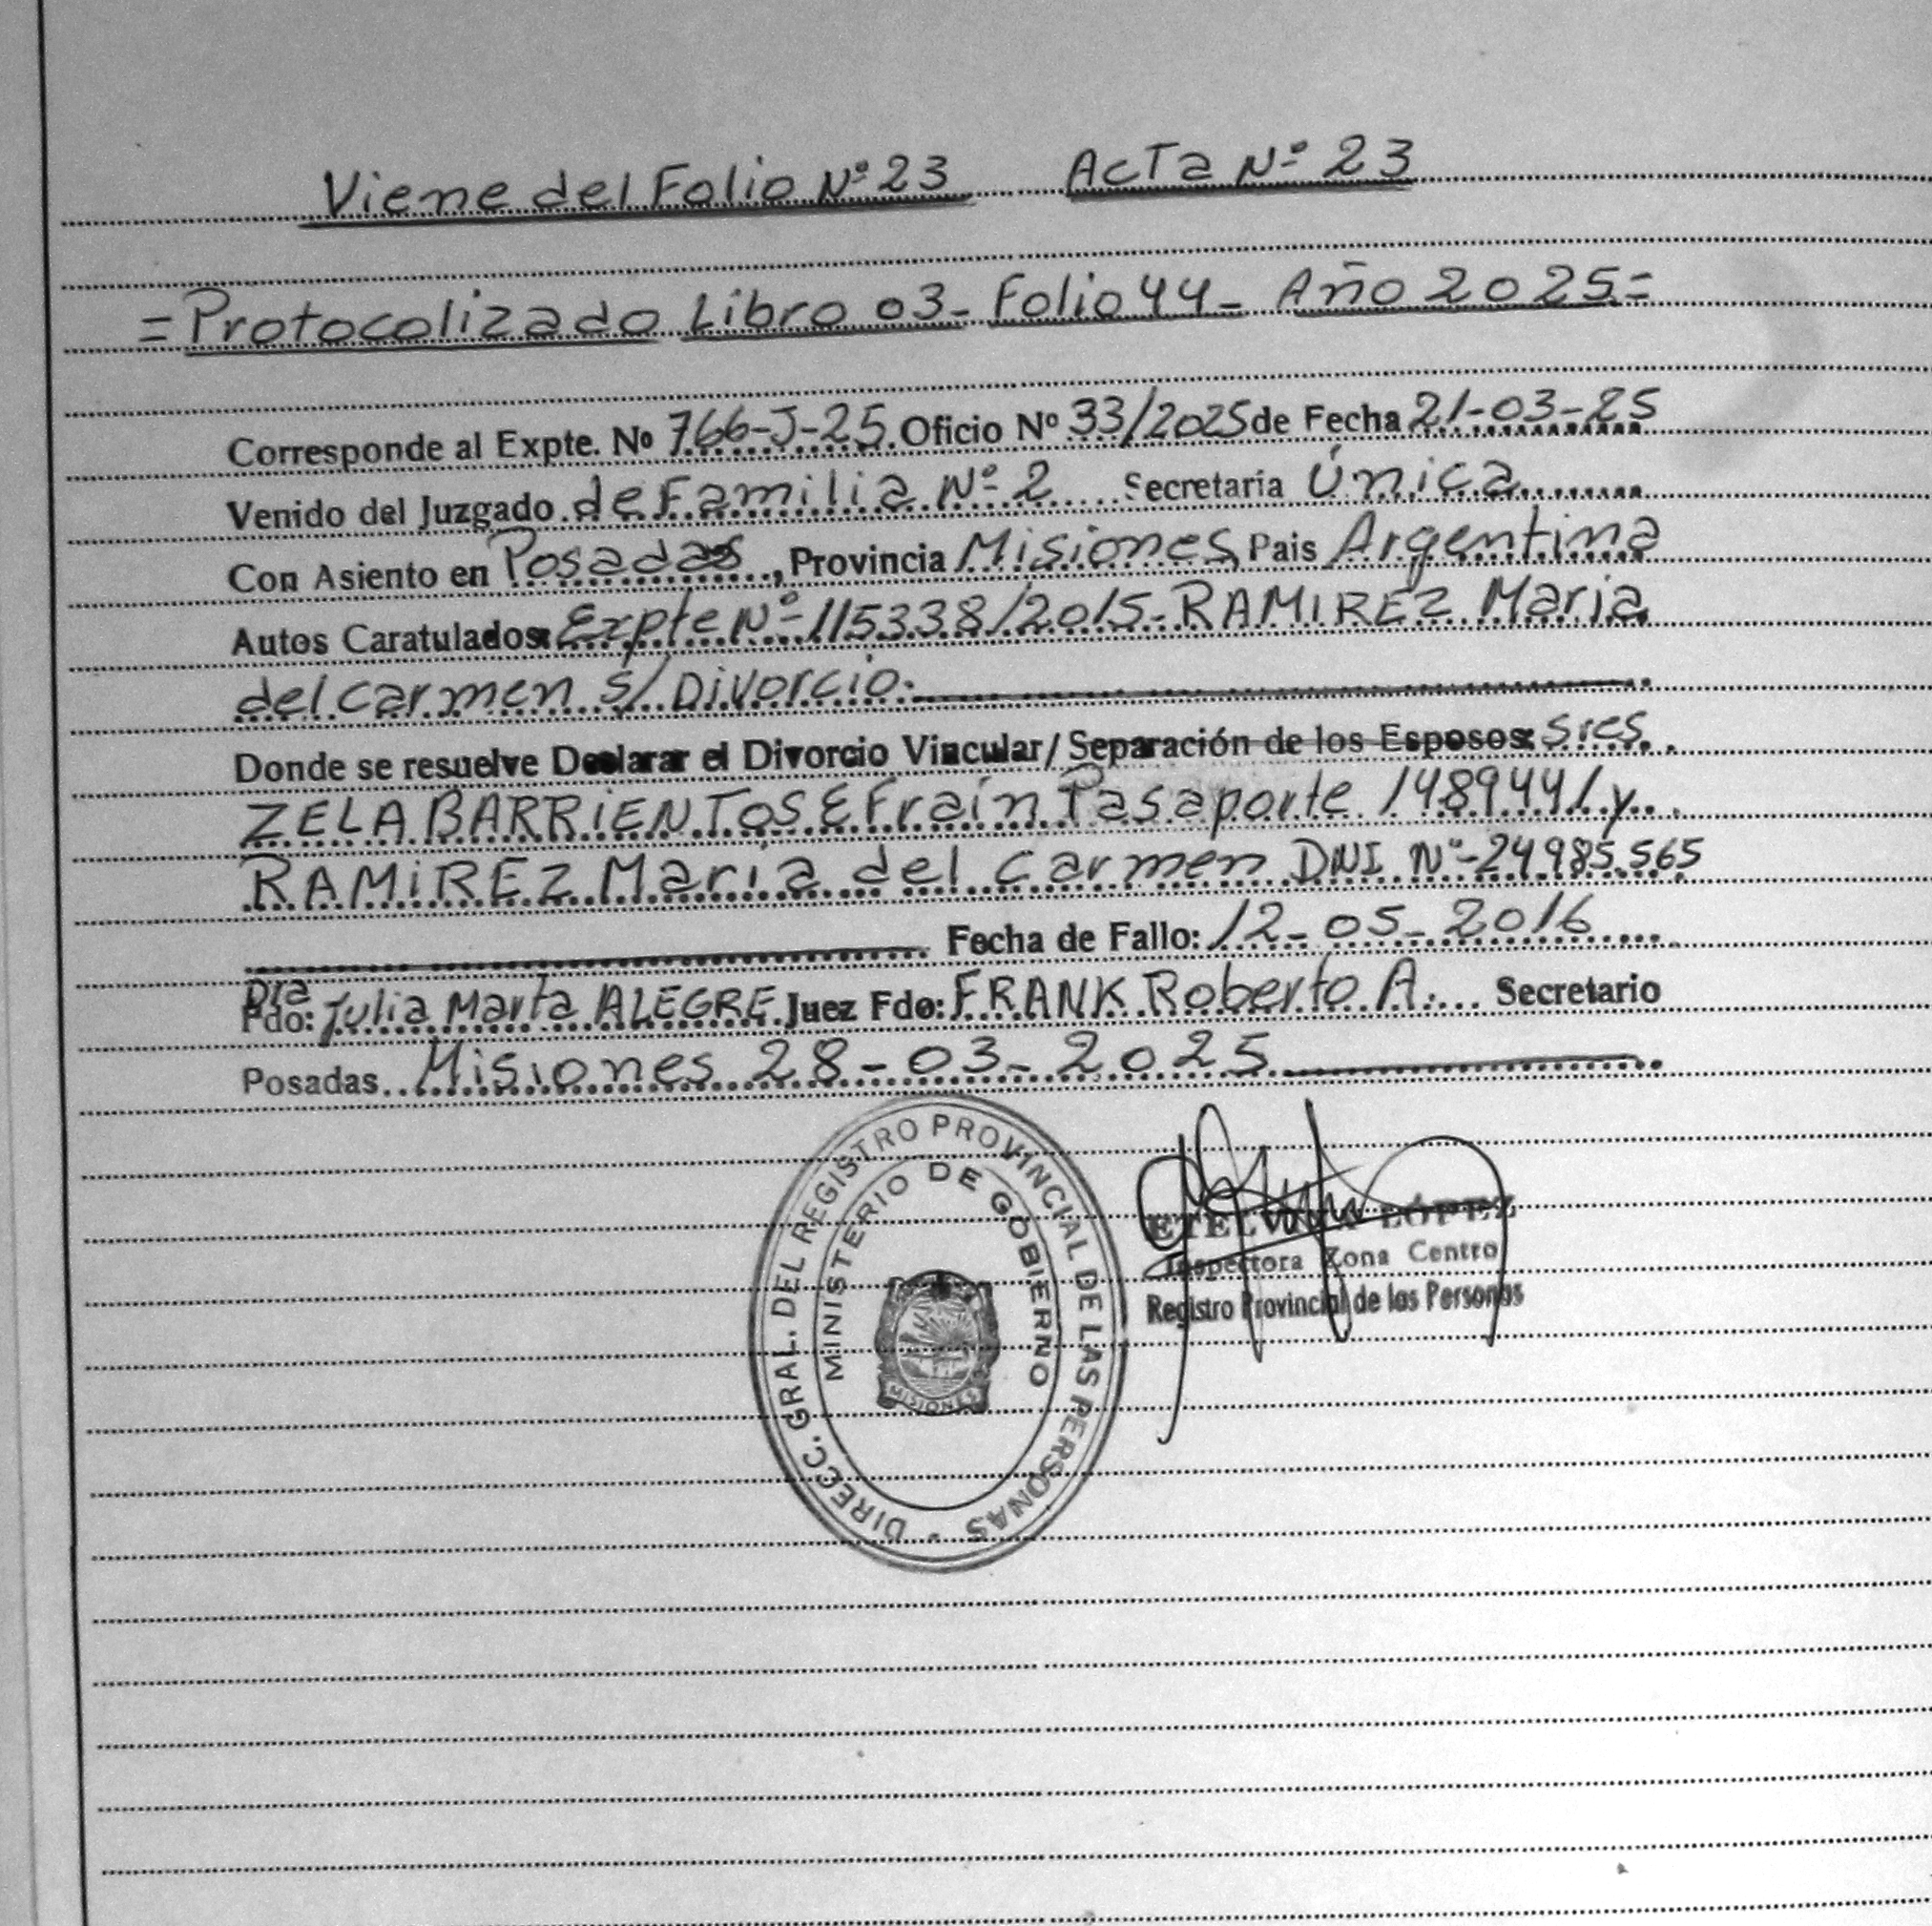 Viene del Folio Nº 23 Acta Nº 23
= Protocolizado Libro 03- Folio 44- Año 2025=
Corresponde al Expte. Nº 766-J-25. Oficio Nº 33/2025 de Fecha 21-03-25
Venido del Juzgado de Familia Nº 2 Secretaría Única
Con Asiento en Posadas, Provincia Misiones, Pais Argentina
Autos Caratulados: Expte Nº 115338/2015- RAMIREZ Maria
del carmen s/ Divorcio.
Donde se resuelve Declarar el Divorcio Vincular/ Separación de los Esposos: sres
ZELA BARRIENTOS Efraín Pasaporte 1489441 y
RAMIREZ María del carmen DNI Nº 24985.565
Fecha de Fallo: 12-05-2016
Dra
Fdo: Julia Marta ALEGRE Juez Fdo: FRANK Roberto A. Secretario
Posadas. Misiones 28-03-2025
DIRECC. GRAL. DEL REGISTRO PROVINCIAL DE LAS PERSONAS
MINISTERIO DE GOBIERNO
MISIONES
LÓPEZ
Inspectora Zona Centro
Registro Provincial de las Personas